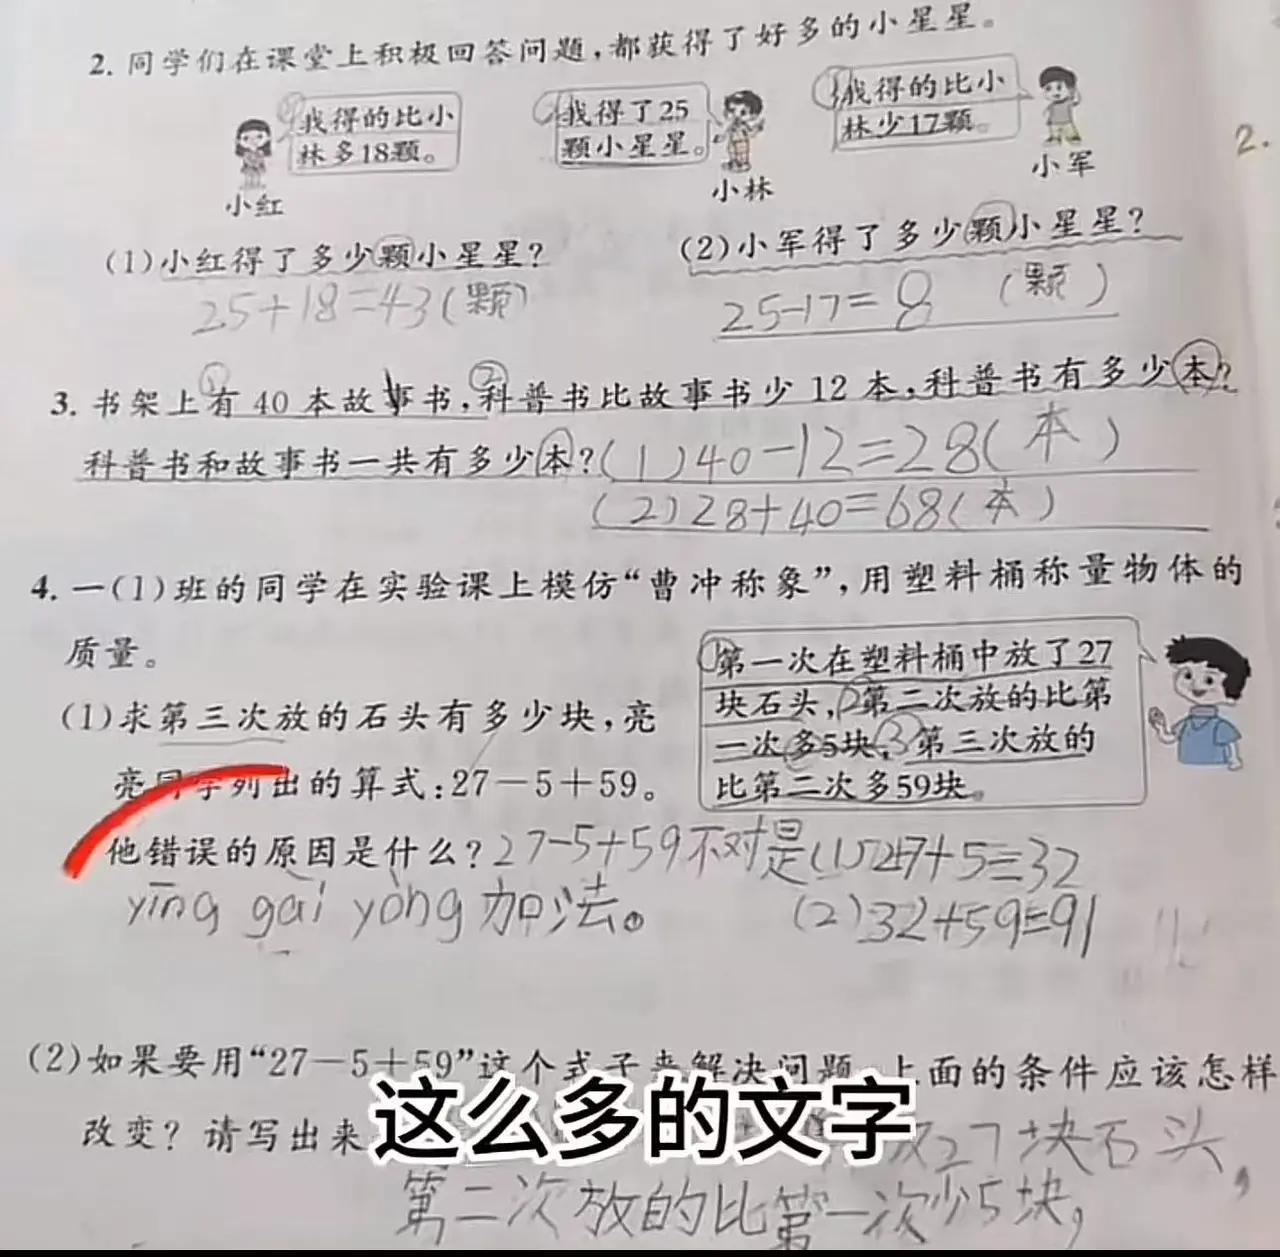 2. 同学们在课堂上积极回答问题,都获得了好多的小星星。
我得的比小
林多18颗。
小红
我得了25
颗小星星。
小林
我得的比小
林少17颗。
小军
2.
(1)小红得了多少颗小星星?
25+18=43(颗)
(2)小军得了多少颗小星星?
25-17=8 (颗)
3. 书架上有40本故事书,科普书比故事书少12本,科普书有多少本?
科普书和故事书一共有多少本?(1)40-12=28(本)
(2)28+40=68(本)
4. 一(1)班的同学在实验课上模仿“曹冲称象”,用塑料桶称量物体的
质量。
(1)求第三次放的石头有多少块,亮
亮同学列出的算式:27-5+59。
他错误的原因是什么?27-5+59不对是(1)27+5=32
yīng gāi yòng加法。
(2)32+59=91
①第一次在塑料桶中放了27
块石头,②第二次放的比第
一次多5块,③第三次放的
比第二次多59块。
(2)如果要用“27-5+59”这个式子来解决问题,上面的条件应该怎样
改变?请写出来
27块石头,
第二次放的比第一次少5块,
这么多的文字